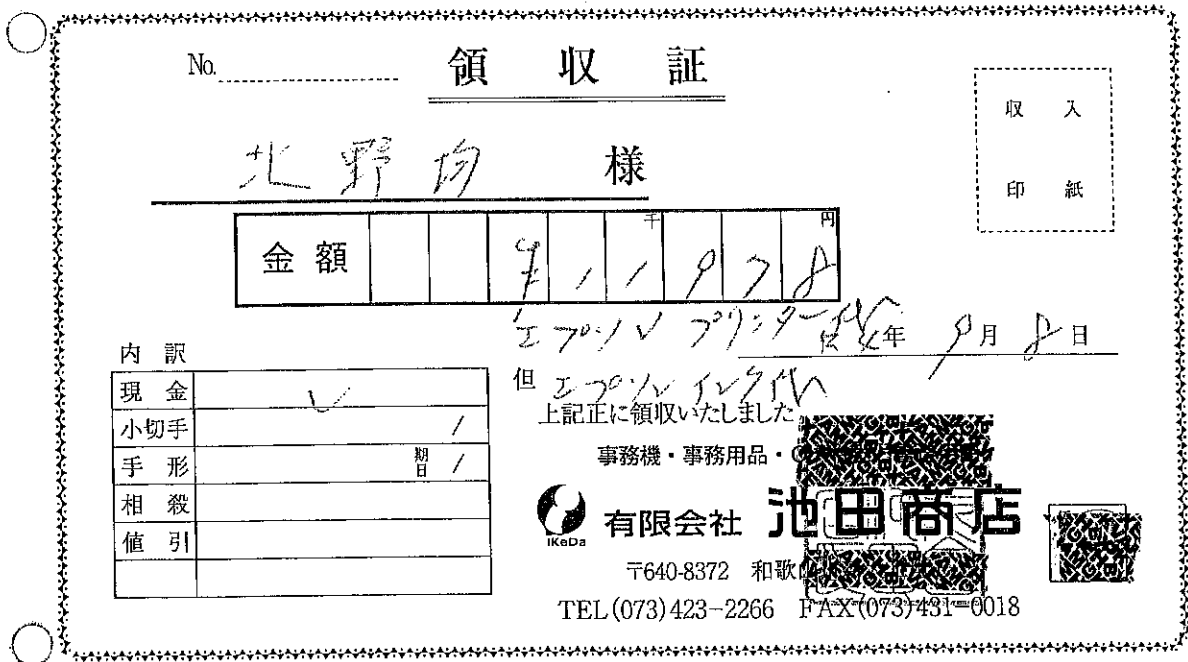 No. 領収証
収入
印紙
北野均 様
金額 千 円 ¥11978
エプソン プリンター代 年 9月8日
但 エプソン インク代
上記正に領収いたしました
内訳
現金 ✓
小切手 /
手形 期日 /
相殺
値引
事務機・事務用品・
IKeDa 有限会社 池田商店
〒640-8372 和歌
TEL(073)423-2266 FAX(073)431-0018